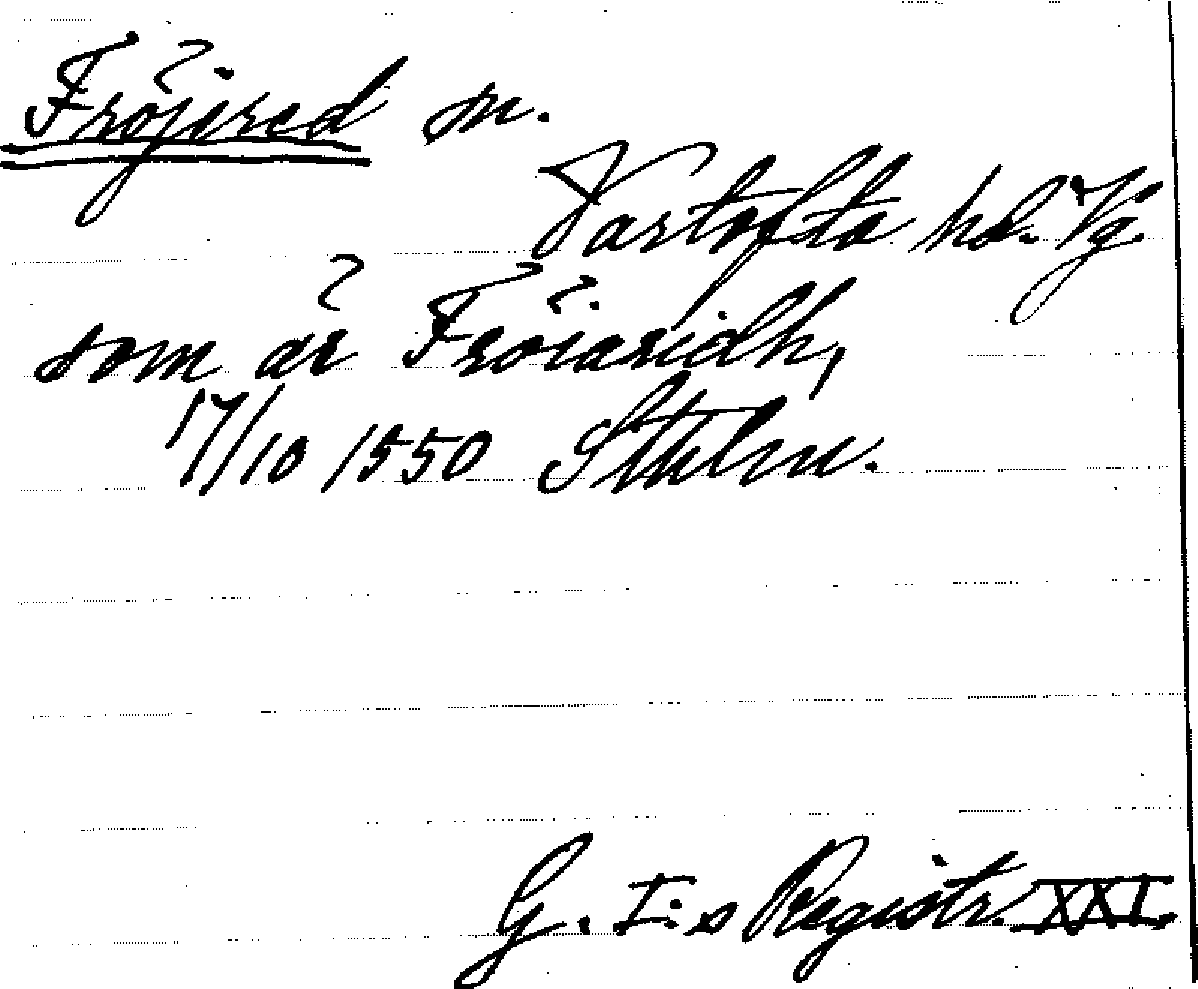 Fröjered sn.
Vartofta hd. Vg.
som är Fröiaridh,
17/10 1550 Sthlm.
G. I:s Registr. XXI.